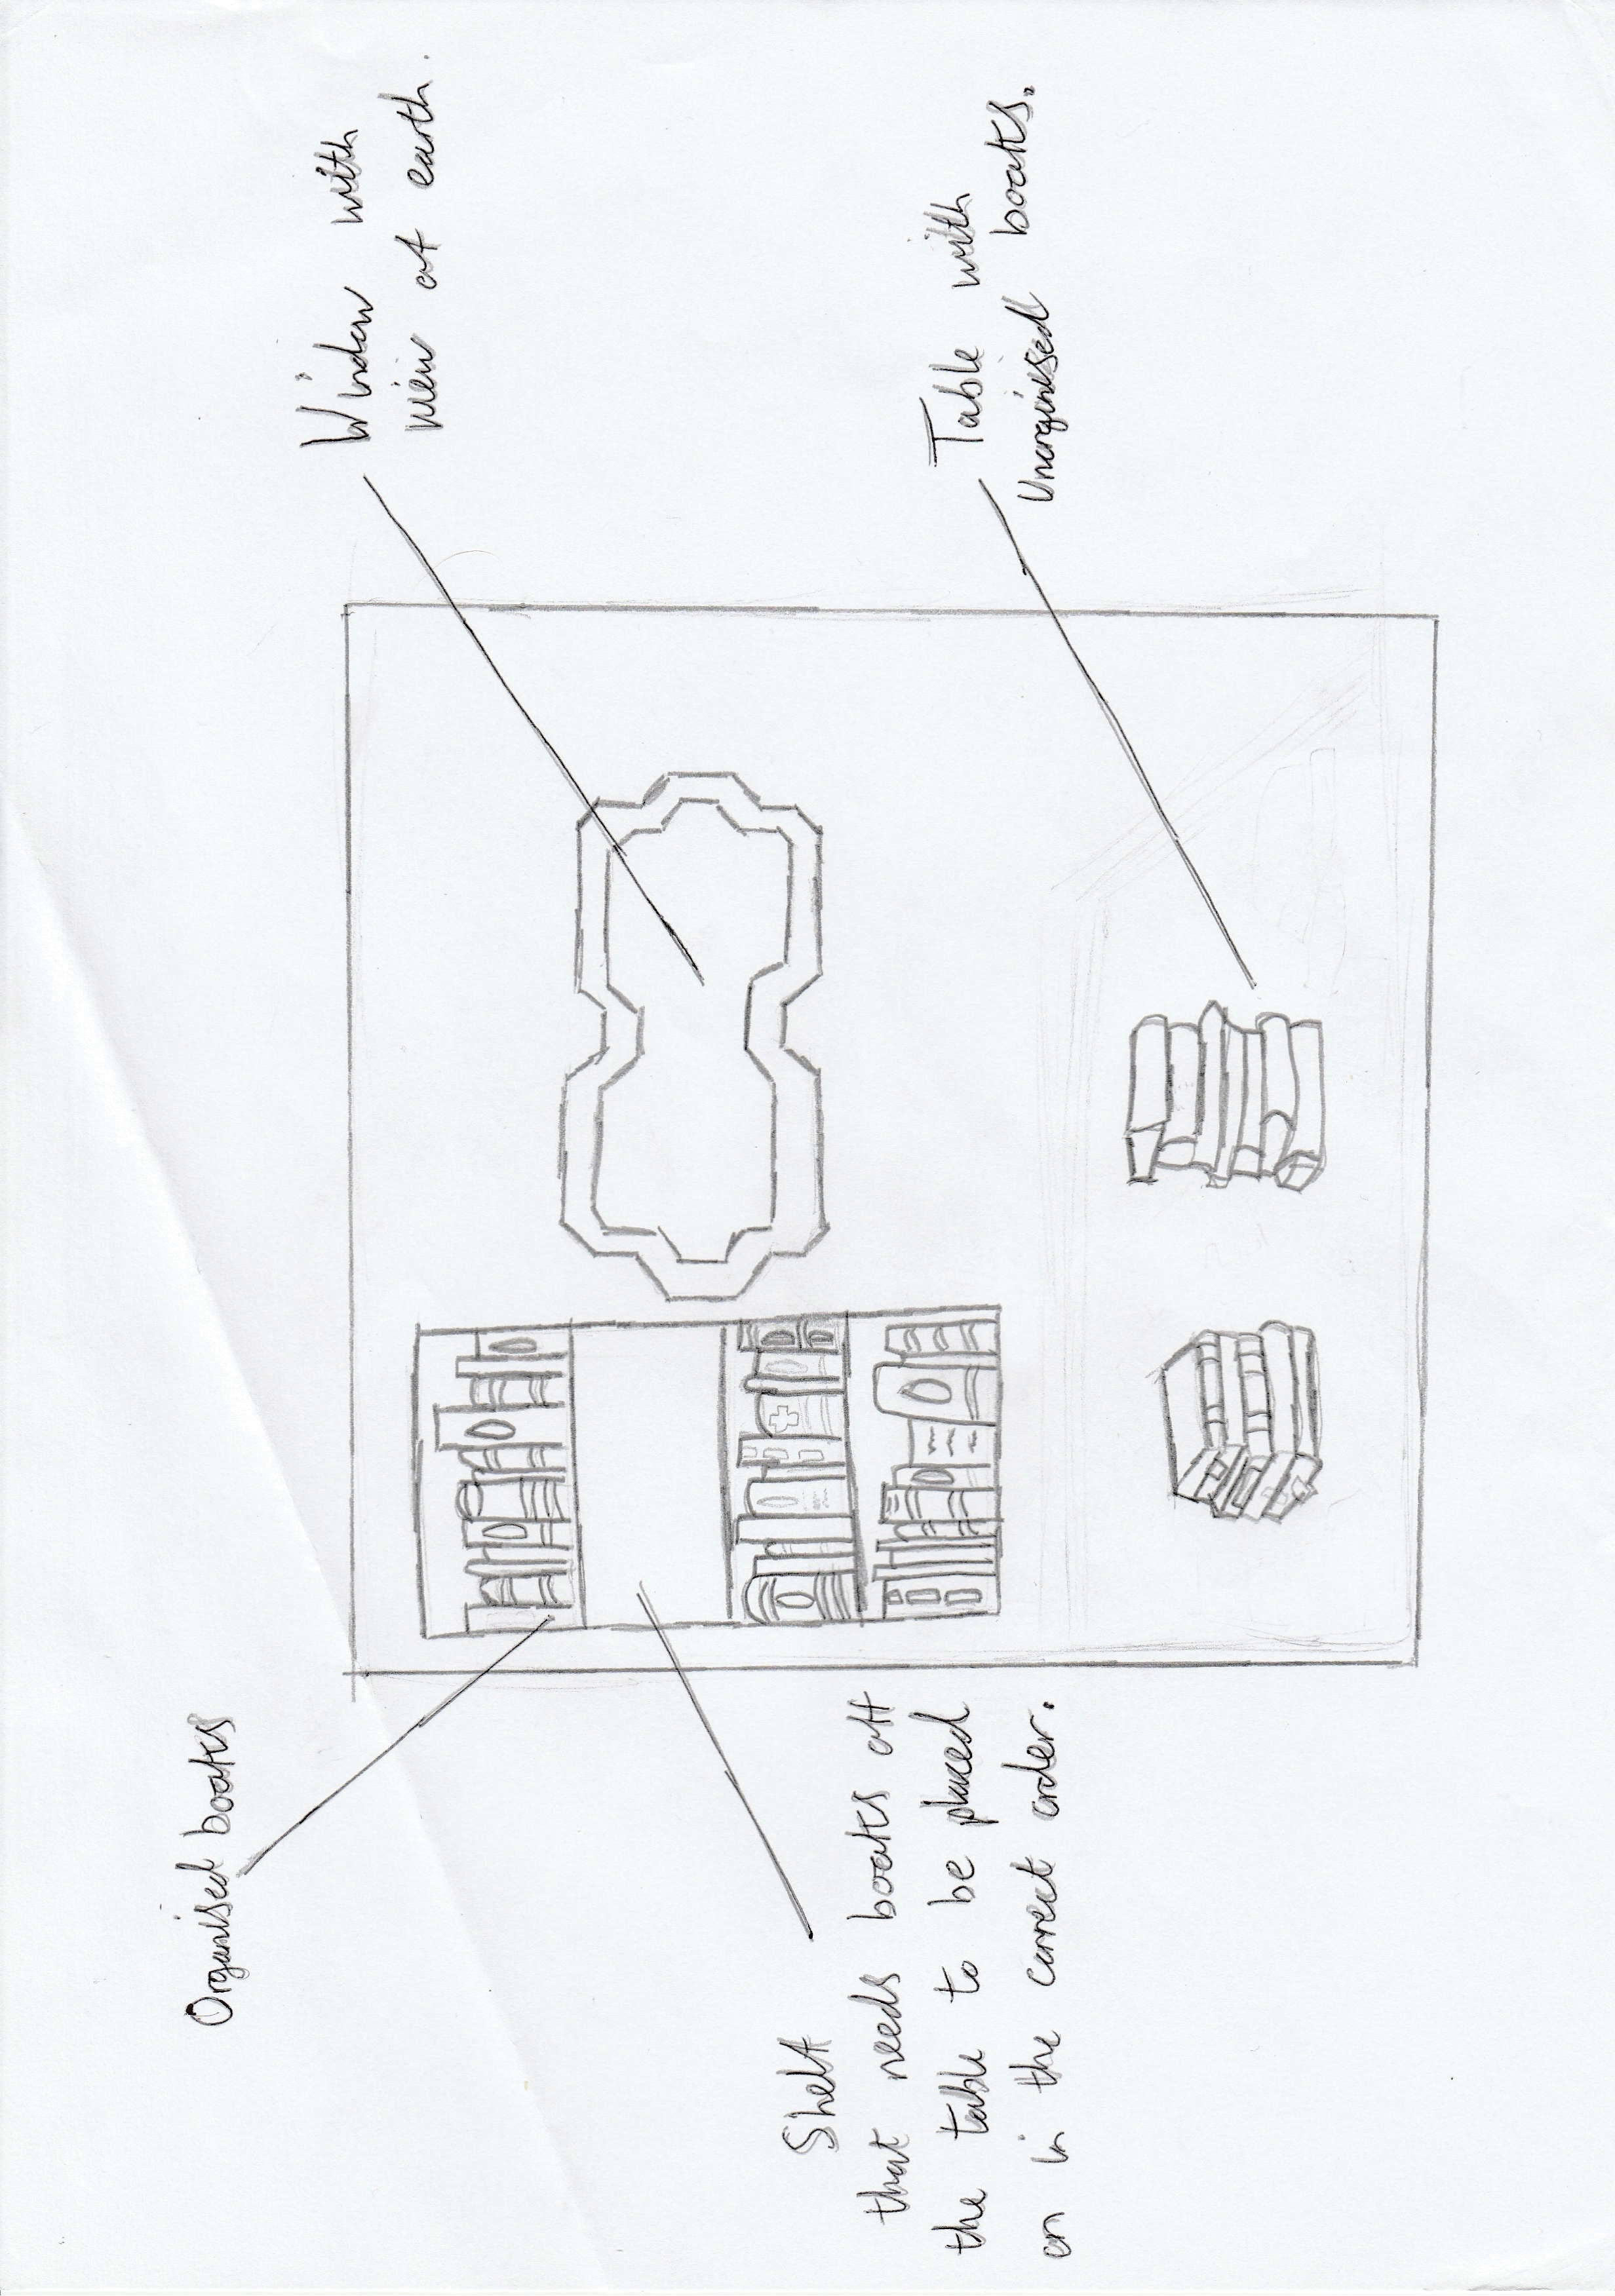 Organised books
Window with
view of earth.
Shelf
that needs books off
the table to be placed
on in the correct order.
Table with
Unorginised books.